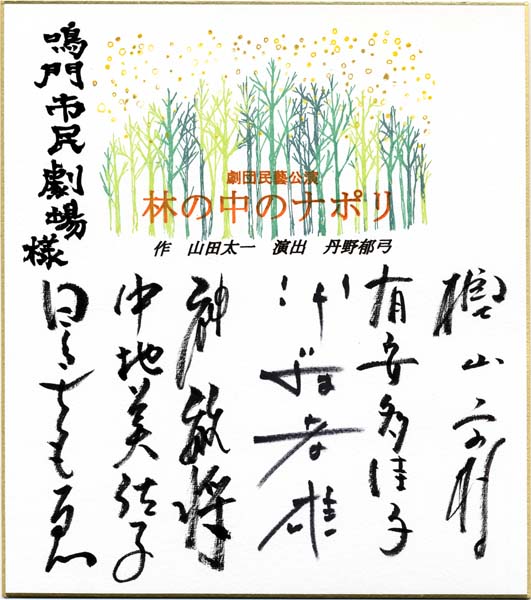 鳴門市民劇場様
劇団民藝公演
林の中のナポリ
作 山田太一 演出 丹野郁弓
樫山文枝
有安多佳子
伊藤孝雄
神敏将
中地美佐子
日色ともゑ